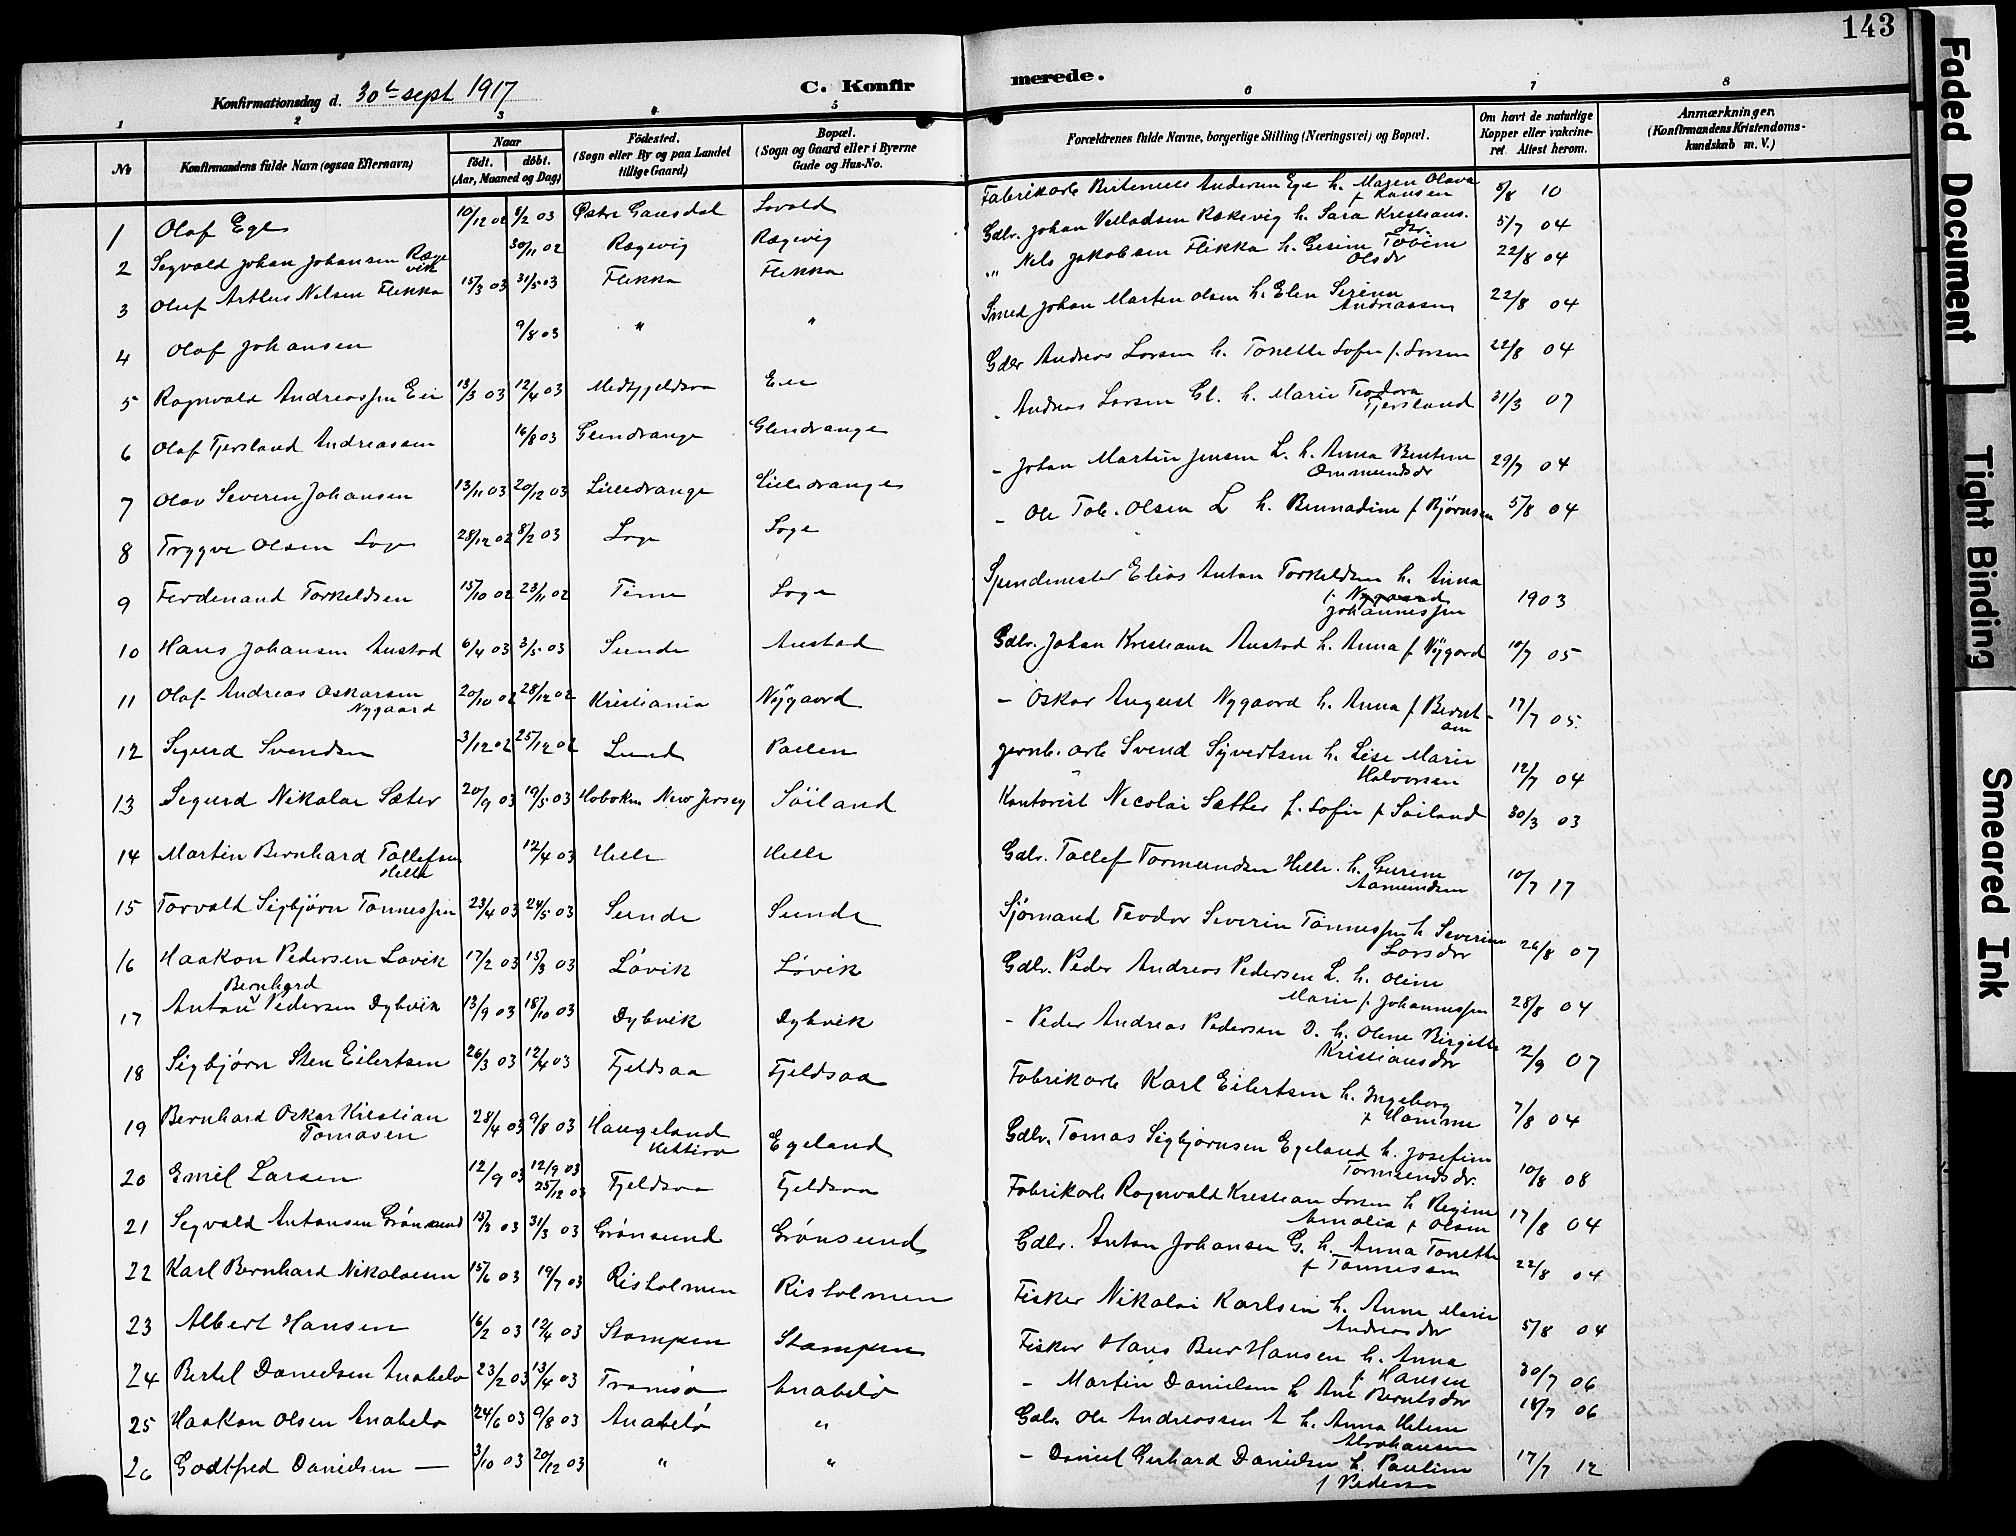 143
Konfirmationsdag d. 30te sept 1917
C. Konfirmerede.
1 2 3 4 5 6 7 8
No
Konfirmandens fulde Navn (ogsaa Efternavn)
Naar
födt. döbt.
(Aar, Maaned og Dag)
Födested.
(Sogn eller By og paa Landet
tillige Gaard)
Bopæl.
(Sogn og Gaard eller i Byerne
Gade og Hus-No.
Forældrenes fulde Navne, borgerlige Stilling (Næringsvei) og Bopæl.
Om havt de naturlige
Kopper eller vakcine-
ret. Attest herom.
Anmærkninger.
(Konfirmandens Kristendoms-
kundskab m. V.)
1 Olaf Ege 10/12 02 8/2 03 Østre Gausdal Lovold Fabrikarb. Andersen Ege h. Maren Olava f Hansen 5/8 10
2 Sigvald Johan Johansen Rægevik 30/11 02 Rægevig Rægevig Gdbr. Johan Velladsen Rækevig h. Sara Kristians.dr. 5/7 04
3 Oluf Artlus Nilsen Flikka 15/3 03 31/5 03 Flikka Flikka " Nils Jakobsen Flikka h. Gesine Tobine Olsdr 22/8 04
4 Olaf Johansen 9/8 03 " " Smed Johan Marten Olsen h. Elen Serine Andreassen 22/8 04
5 Ragnvald Andreassen Eie 13/3 03 12/4 03 Midtfjeldsaa Eie Gdbr Andreas Larsen h. Tonette Sofie f. Larsen 22/8 04
6 Olaf Tjersland Andreassen 16/8 03 Glendrange Glendrange - Andreas Larsen Gl. h. Marie Teodora Tjersland 31/3 07
7 Olav Severin Johansen 13/11 03 20/12 03 Lilledrange Lilledrange - Johan Martin Jensen L. h. Anna Bentine Ommundsdr 29/7 04
8 Trygve Olsen Loge 28/12 02 8/2 03 Loge Loge - Ole Tob. Olsen L h. Bernadine f Bjørnsen 5/8 04
9 Ferdinand Torkeldsen 15/10 02 23/11 02 Time Loge Spindemester Elias Anton Torkeldsen h. Anna f. Nygaard Johannessen 1903
10 Hans Johansen Austad 6/4 03 3/5 03 Sunde Austad Gdbr. Johan Kristiansen Austad h. Anna f Nygård 10/7 05
11 Olaf Andreas Oskarsen Nygaard 20/10 02 28/12 02 Kristiania Nygaard - Oskar August Nygaard h. Anna f Berntsen 17/7 05
12 Sigurd Svendsen 3/12 02 25/12 02 Lund Paelen Jernb. arb Svend Sivertsen h. Lise Marie Halvorsen 12/7 04
13 Sigurd Nikolai Sæter 20/9 03 19/5 03 Hoboken New Jersey Söiland Kontorist Nicolai Sæther h. Sofie f Söiland 30/3 03
14 Martin Bernhard Tollefsen Helle 12/4 03 Helle Helle Gdbr. Tollef Tormundsen Helle. h. Gurine Aamundsen 10/7 17
15 Torvald Sigbjörn Tönnessen 23/4 03 24/5 03 Sunde Sunde Sjömand Teodor Severin Tönnessen h Severine Larsdr 26/8 07
16 Haakon Pedersen Lövik 17/2 03 15/3 03 Lövik Lövik Gdbr. Peder Andreas Pedersen L. h. Oline Marie f. Johannessen 28/8 04
17 Anton Bernhard Pedersen Dybvik 13/9 03 18/10 03 Dybvik Dybvik - Peder Andreas Pedersen D. h. Oline Birgitte Kristiansdr 12/9 07
18 Sigbjörn Sten Eilertsen 26/3 03 12/4 03 Fjeldsaa Fjeldsaa Fabrikarb Karl Eilertsen h. Ingeborg f Hamme 7/8 04
19 Bernhard Oskar Kristian Tomasen 28/4 03 9/8 03 Haugeland Egeland Gdbr. Tomas Sigbjörnsen Egeland h. Josefine Tormundsdr. 10/8 08
20 Emil Larsen 12/9 03 12/9 03 25/12 03 Fjeldsaa Fjeldsaa Fabrikarb Ragnvald Kristian Larsen h Regine Amalia f Olsen 17/8 04
21 Sigvald Antonsen Grönsund 15/3 03 31/3 03 Grönsund Grönsund Gdbr. Anton Johansen G. h. Anna Tonette f Tönnessen 22/8 04
22 Karl Bernhard Nikolaisen 15/6 03 19/7 03 Risholmen Risholmen Fisker Nikolai Karlsen h. Anne Marie Andreasdr 5/8 04
23 Albert Hansen 16/2 03 12/4 03 Stampen Stampen Fisker Hans Hansen h. Anna f Hansen 30/7 06
24 Bertel Danielsen Anabelö 23/2 03 13/4 03 Tromsö Anabelö - Martin Danielsen h Ane Berntsdr 18/7 06
25 Haakon Olsen Anabelö 24/6 03 9/8 03 Anabelö " Gdbr. Ole Andreassen A h. Anna Helene Abrahamsen
26 Godtfred Danielsen — 3/10 03 20/12 03 " " - Daniel Gerhard Danielsen h. Pauline f Pedersen 17/7 12
Faded Document
Tight Binding
Smeared Ink